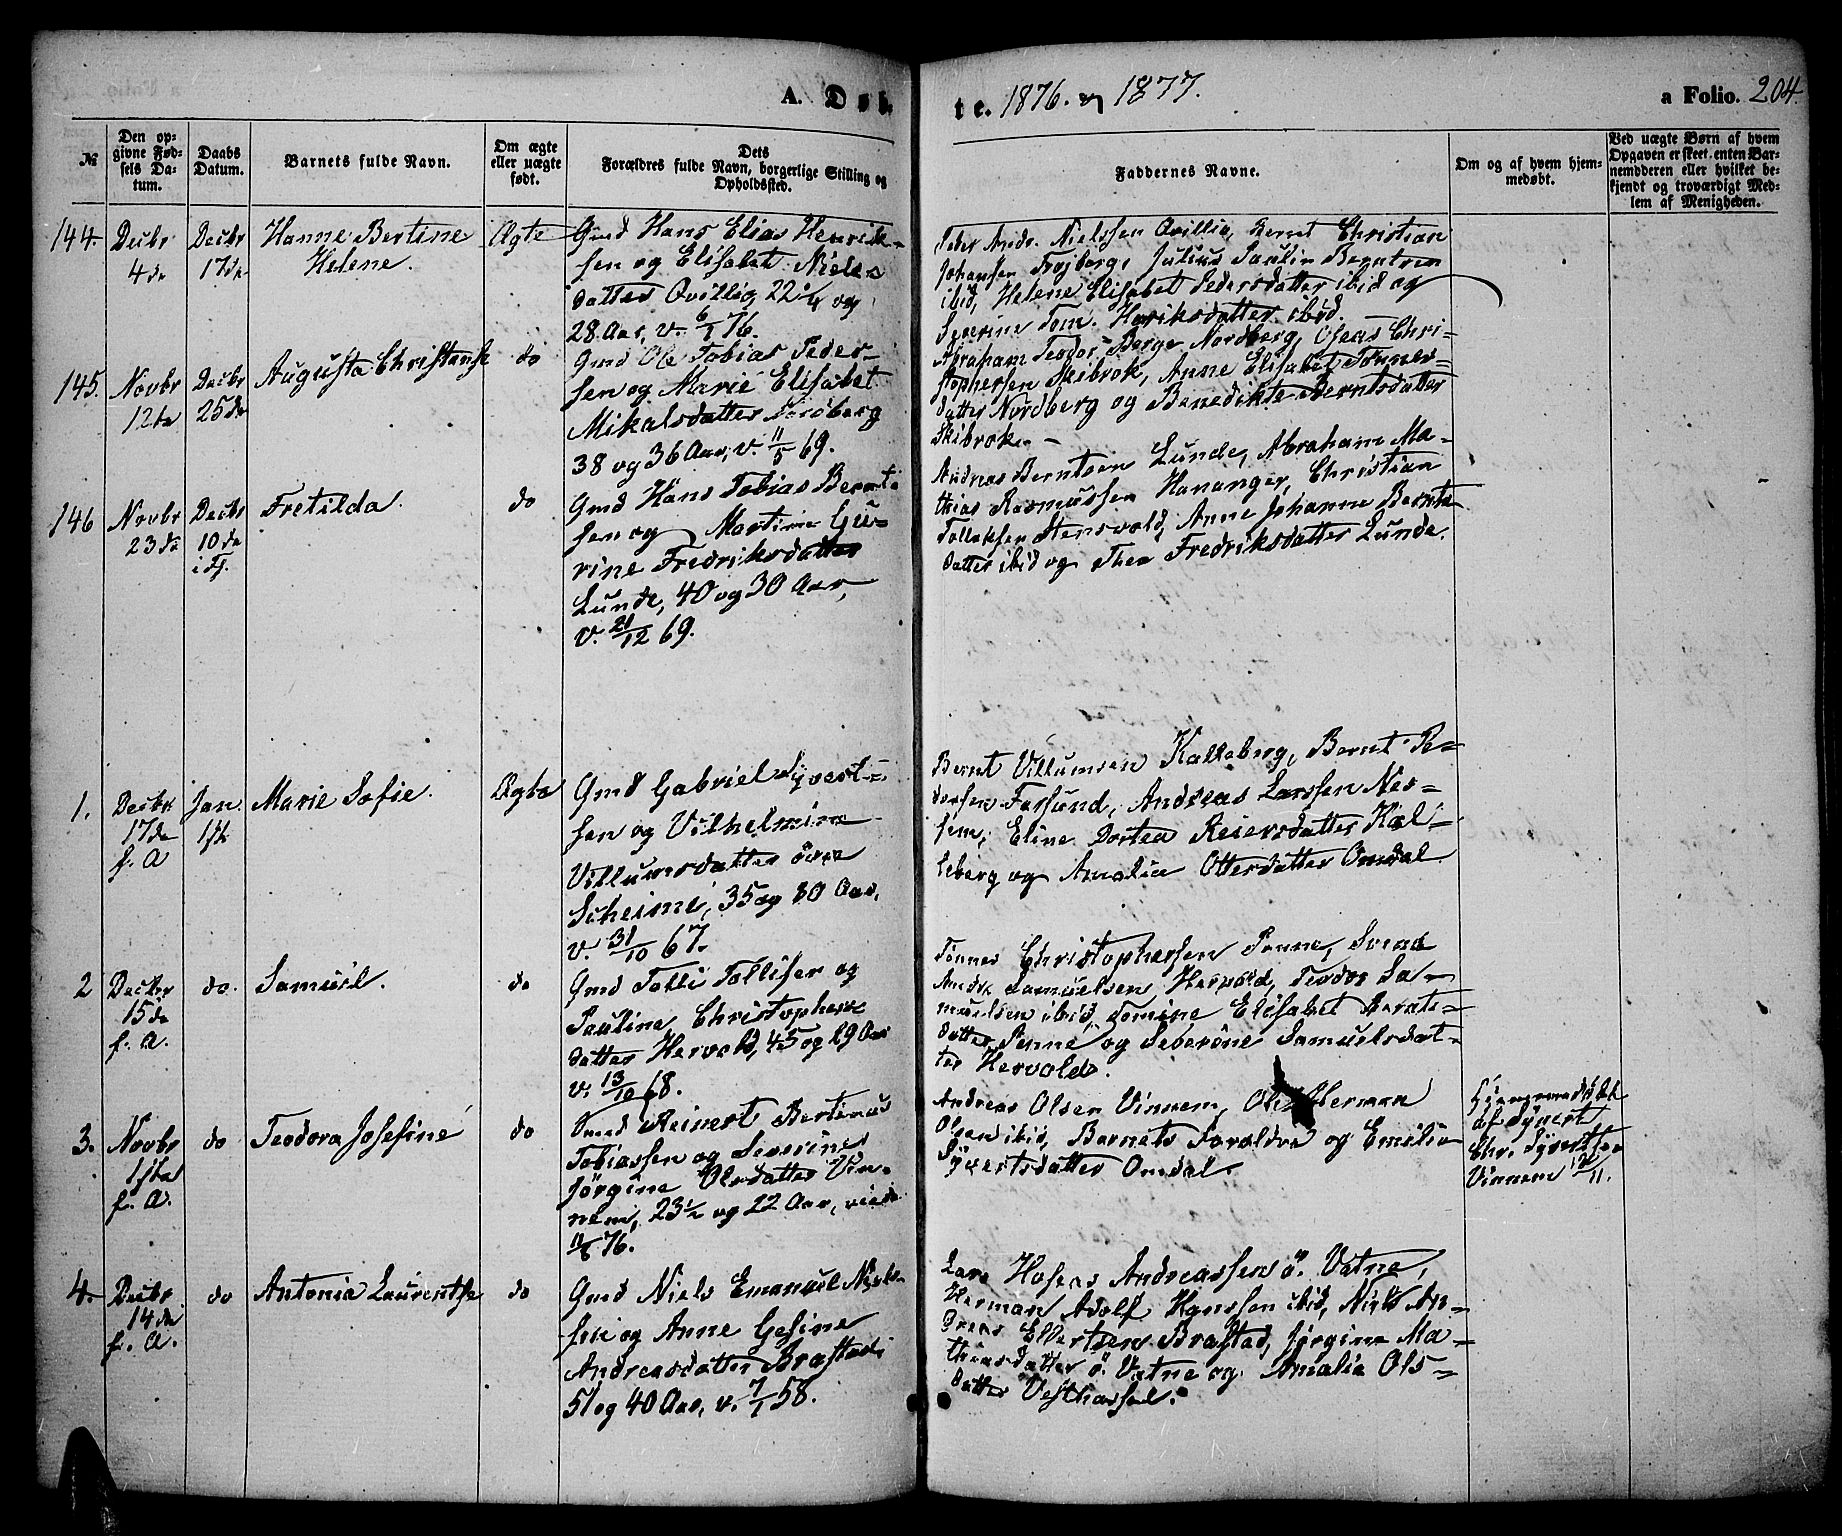 A. Døb-
te. 1876. og 1877.
a Folio. 204.
№
Den op-
givne Fød-
sels Da-
tum.
Daabs
Datum.
Barnets fulde Navn.
Om ægte
eller uægte
født.
Dets
Forældres fulde Navn, borgerlige Stilling og
Opholdssted.
Faddernes Navne.
Om og af hvem hjem-
medøbt.
Ved uægte Børn af hvem
Opgaven er skeet, enten Bar-
nemodderen eller hvilket be-
kjendt og troværdigt Med-
lem af Menigheden.
144.
Decbr
4de
Decbr
17de
Hanne Bertine
Helene.
Ægte
Gmd Hans Elias Henrik-
sen og Elisabet Niels-
datter Qvillig 22 1/4 og
28 Aar, v. 6/1 76.
Peder Andr. Nielssen Qvillig, Bernt Christian
Johansen Frøjberg, Julius Paulin Berntsen
ibid, Helene Elisabet Pedersdatter ibid og
Severine Tom. Henriksdatter ibid.
145.
Novbr
12te
Decbr
25de
Augusta Christense
do
Gmd Ole Tobias Peder-
sen og Marie Elisabet
Mikalsdatter Nordberg
38 og 36 Aar, v. 11/5 69.
Abraham Teodor Berge Nordberg, Oseas Chri-
stophersen Skibrok, Anne Elisabet Tønnes-
datter Nordberg og Benedikte Berntsdatter
Skibrok.
146
Novbr
23de
Decbr
10de
i Fj.
Fretilda
do
Gmd Hans Tobias Bernt-
sen og Martine Gu-
rine Fredriksdatter
Lunde, 40 og 30 Aar,
v. 21/12 69.
Andreas Berntsen Lunde, Abraham Ma-
thias Rasmussen Hananger, Christian
Tollaksen Stensvold, Anne Johanne Bernts-
datter ibid og Thea Fredriksdatter Lunde.
1.
Decbr
17de
f. A
Jan.
1ste
Marie Sofie.
Ægte
Gmd Gabriel Syvert-
sen og Vilhelmine
Villumsdatter øvre
Scheime, 35 og 30 Aar,
v. 31/10 67.
Bernt Villumsen Kalleberg, Bernt Pe-
dersen Farsund, Andreas Larssen Nes-
heim, Eline Dortea Reiersdatter Kal-
leberg og Amalia Ottersdatter Omdal
2
Decbr
15de
f. A.
do.
Samuel.
do
Gmd Tolli Tollisen og
Pauline Christophers-
datter Hervold, 45 og 29 Aar
v. 13/10 68.
Tønnes Christophersen Penne, Svend
Andr. Samuelsen Hervold, Teodor Sa-
muelsen ibid, Tomine Elisabet Bernts-
datter Penne og Severine Samuelsdat-
ter Hervold.
3.
Novbr
1ste
f. A.
do
Teodora Josefine
do
Gmd Reinert Bertinus
Tobiassen og Severine
Jørgine Olsdatter Vin-
nem, 23 1/2 og 22 Aar, viede
11/8 76.
Andreas Olsen Vinnem, Ole Herman
Olsen ibid, Barnets Forældre og Emilie
Syvertsdatter Omdal.
Hjemmedøbt
af Syvert
Chr. Syvertsen
Vinnem /11.
4.
Decbr
14de
f. A.
do
Antonia Laurentse
do
Gmd Niels Emanuel Niels-
sen og Anne Gesine
Andreasdatter Brastad
51 og 40 Aar, v. 7/1 58.
Lars Hoseas Andreassen ö. Vatne,
Herman Adolf Hanssen ibid, Niels An-
dreas Ellertsen Brastad, Jørgine Ma-
thiasdatter ö. Vatne og Amalia Ols-
datter Vesthassel.